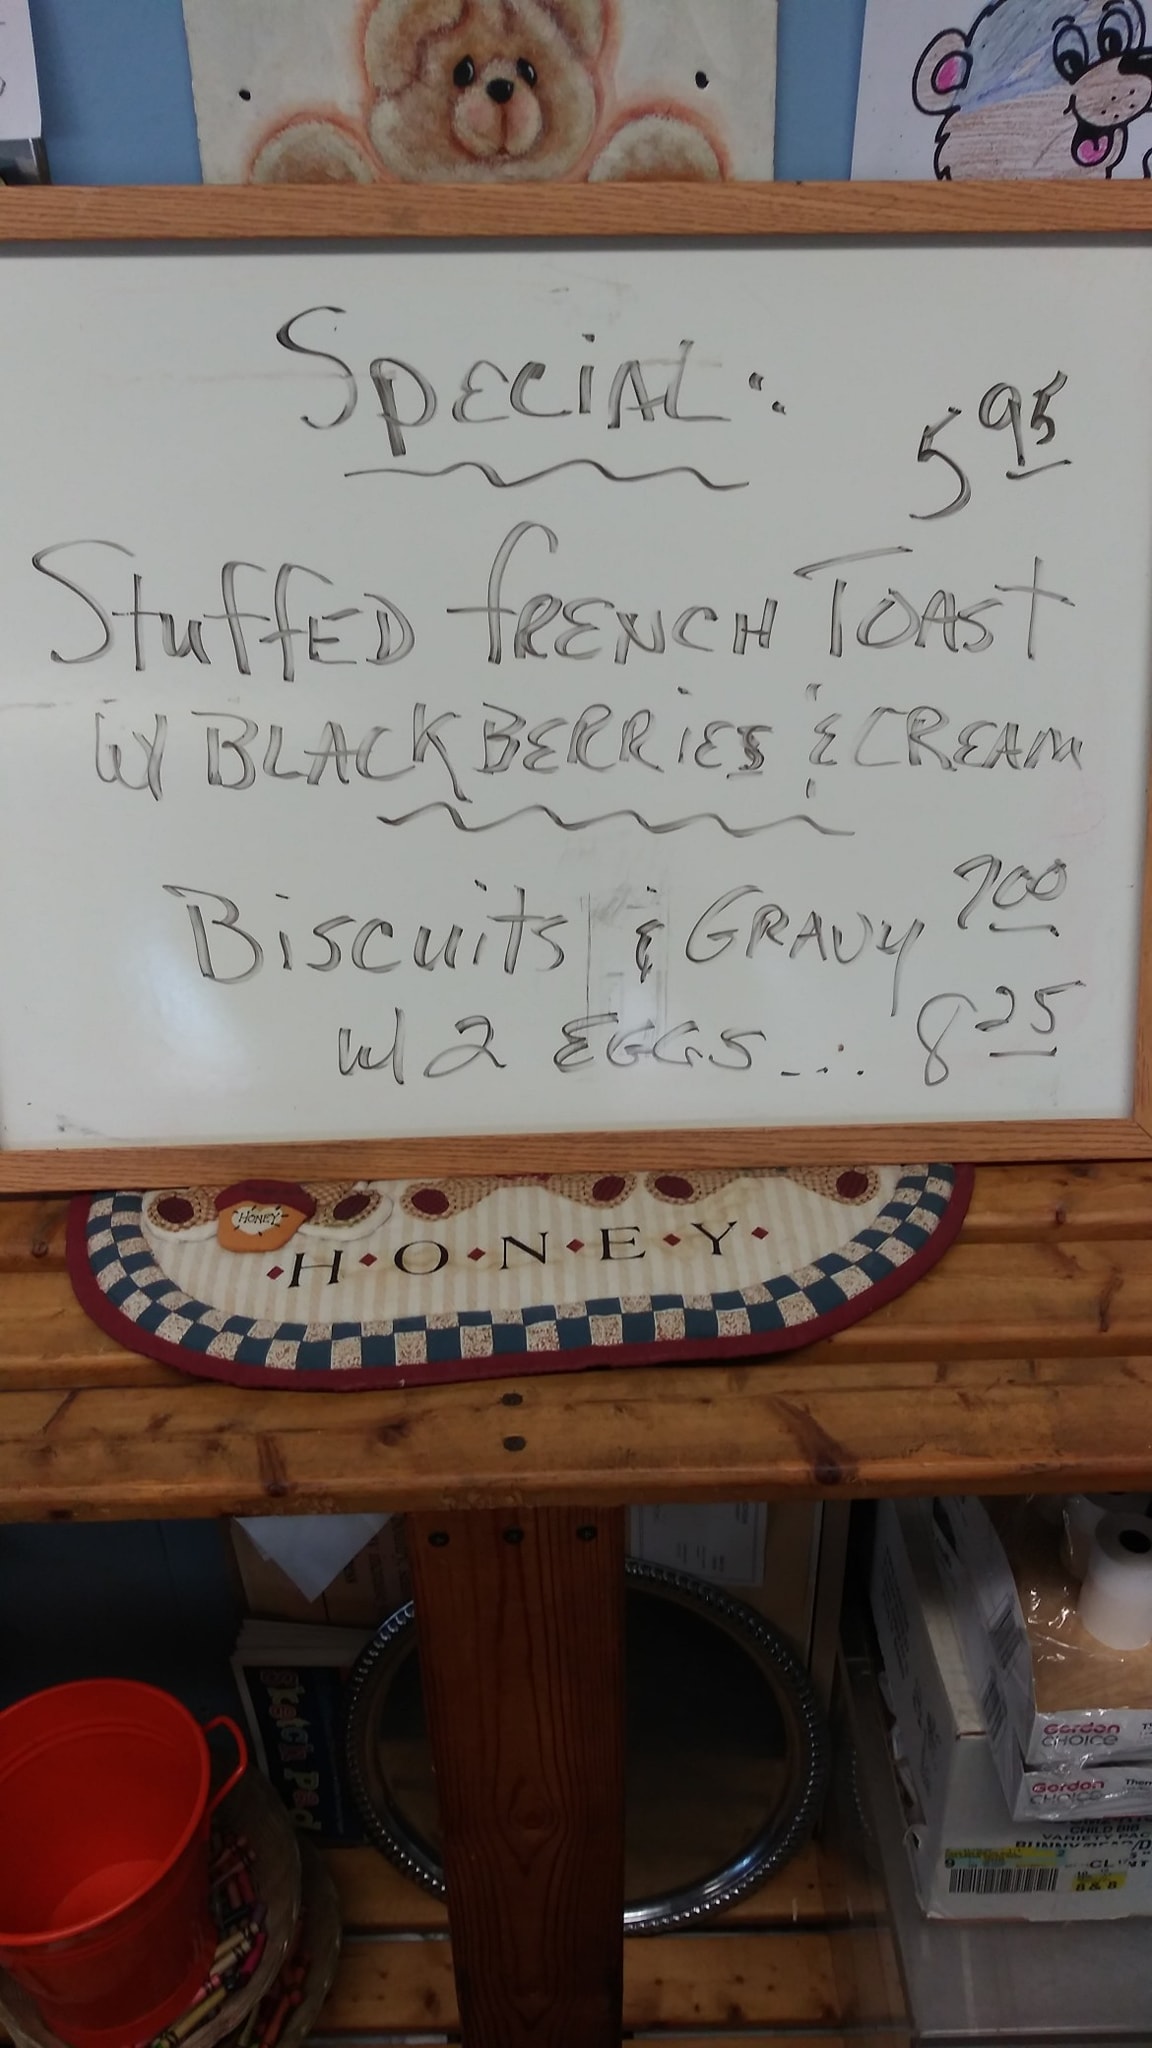 SPECIAL:
5 95
STUFFED FRENCH TOAST
W/ BLACKBERRIES & CREAM
BISCUITS & GRAVY 7 00
w/ 2 EGGS... 8 25
HONEY
H·O·N·E·Y
Sketch Pad
Gordon
CHOICE
Gordon
CHOICE
CHILD BIB
VARIETY PAC
8 & 8